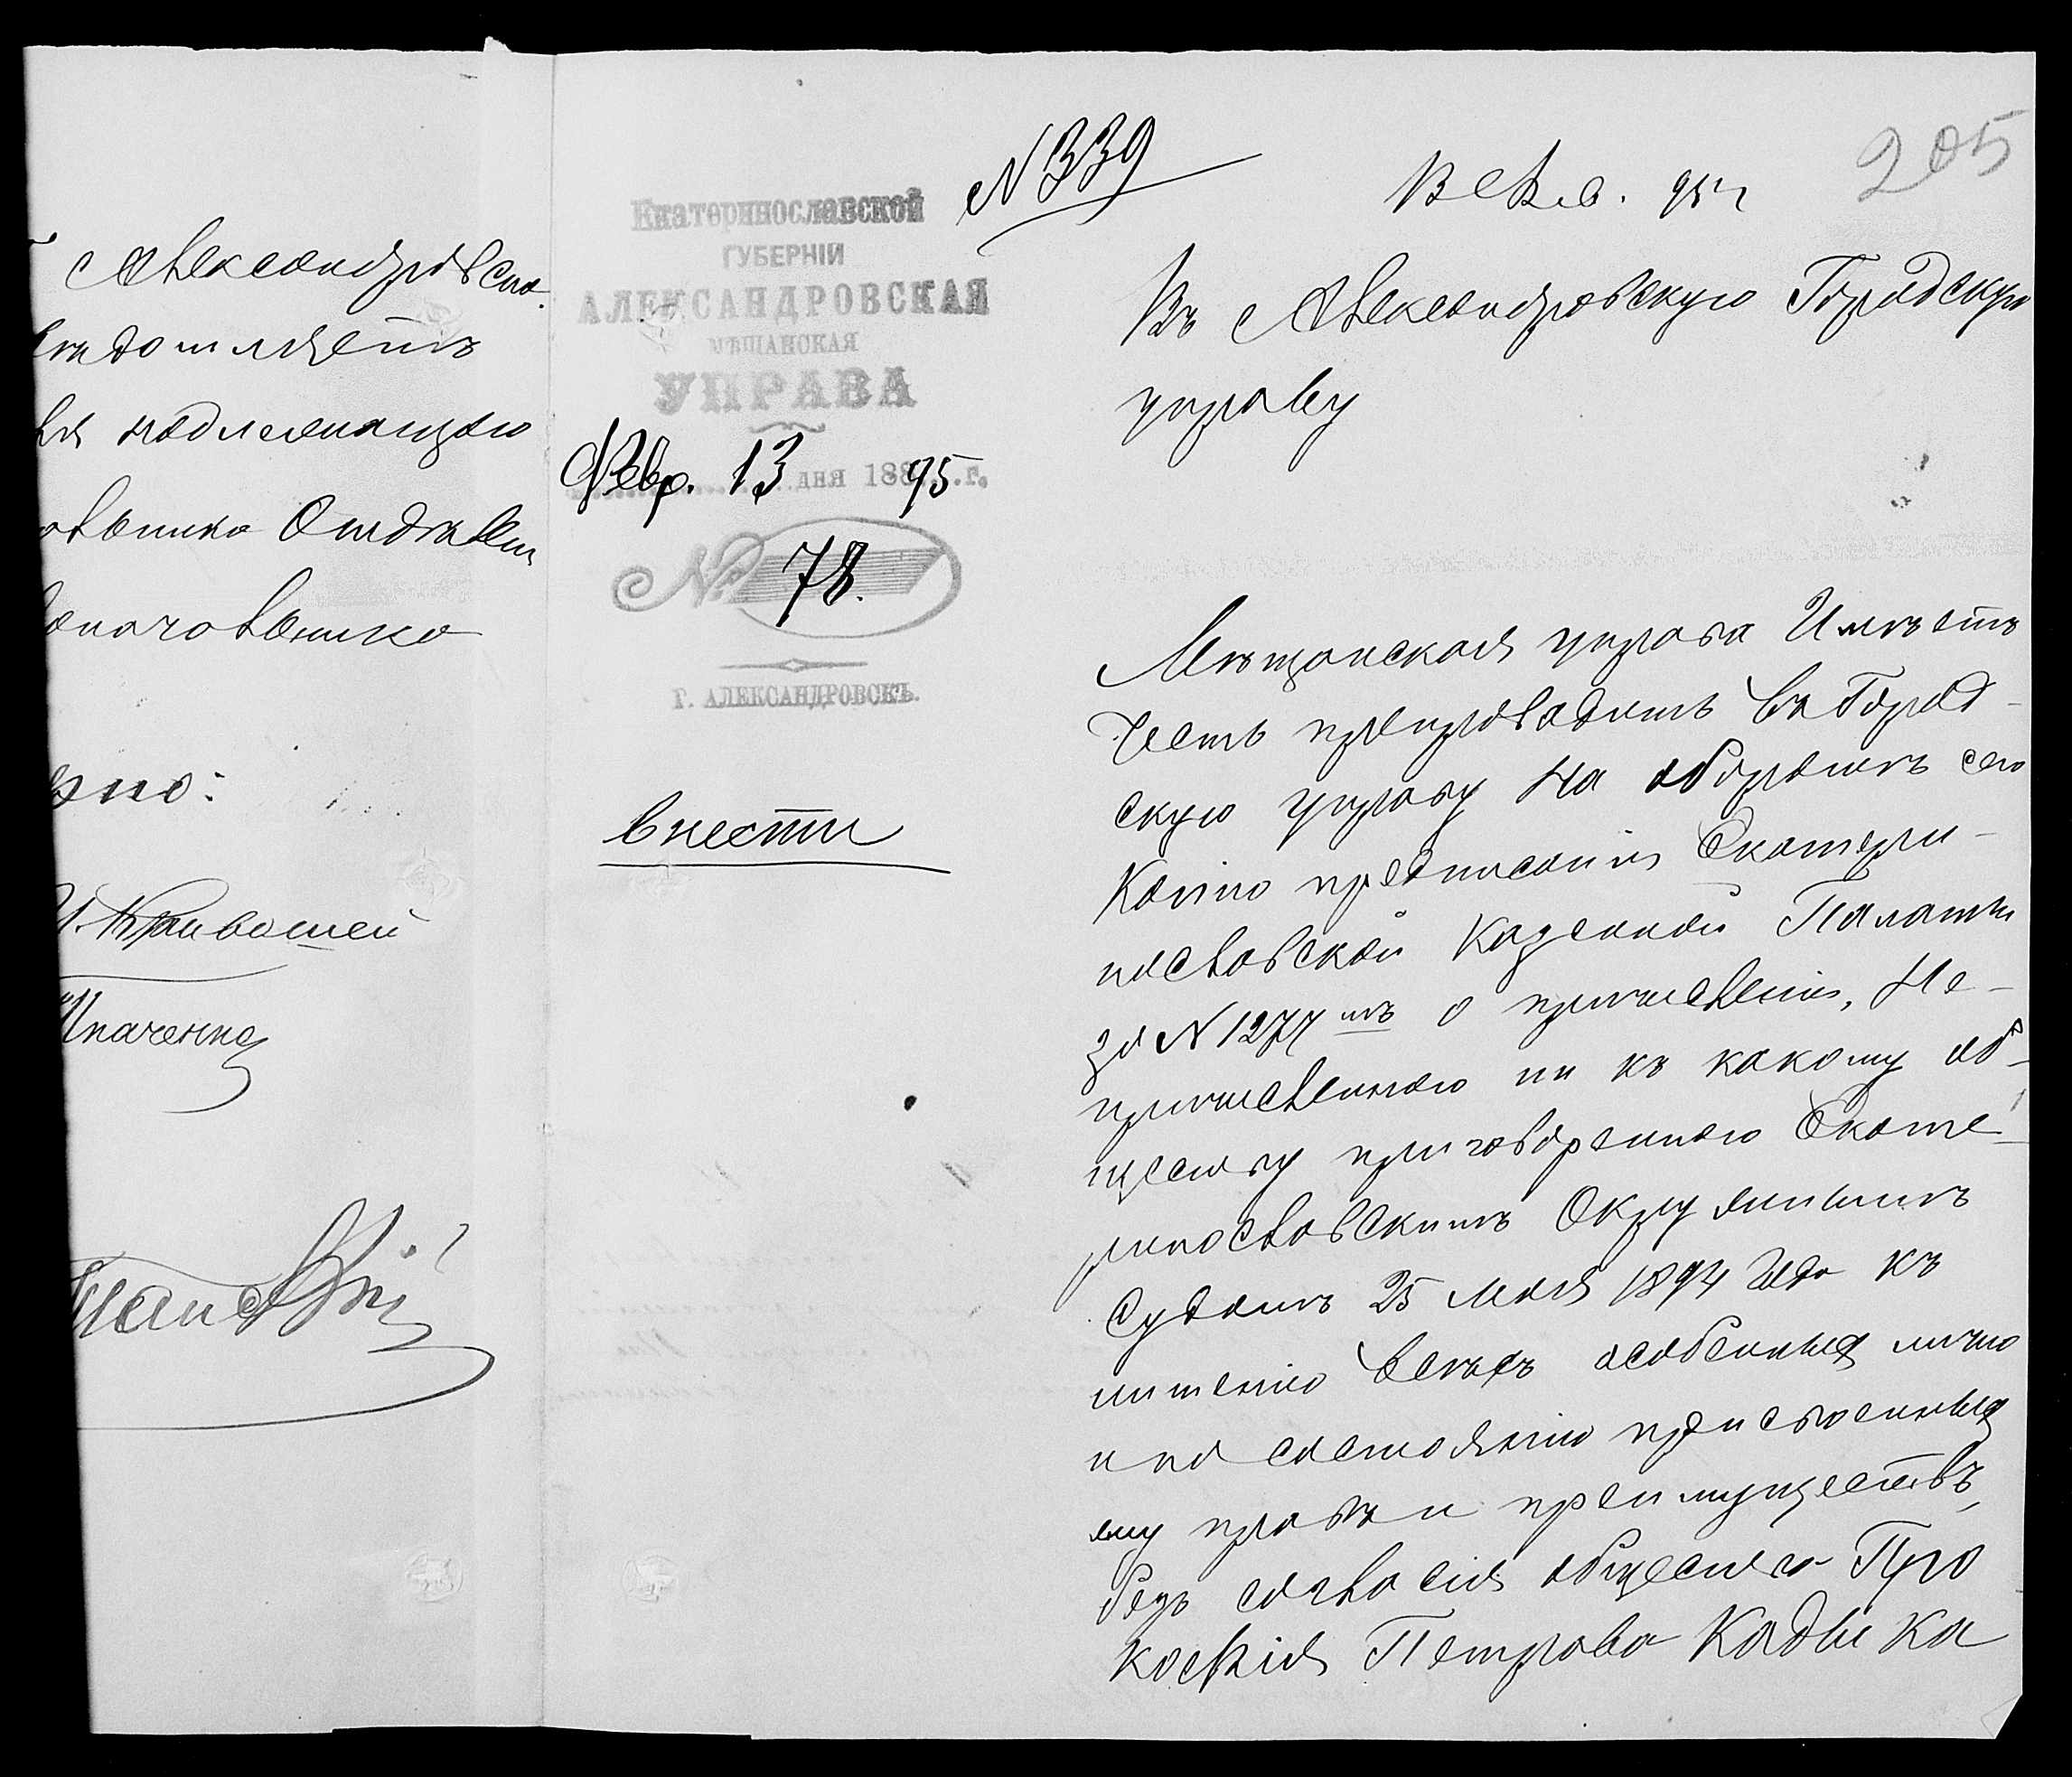 Александровско
надлежащею
Кривошей
Ткаченко
Екатеринославской
ГУБЕРНІИ
АЛЕКСАНДРОВСКАЯ
МѢЩАНСКАЯ
УПРАВА
Февр. 13 дня 1895 г.
№ 78.
Г. АЛЕКСАНДРОВСКЪ.
внести
N 339
205
Въ Александровскую Городскую
управу
Мѣщанская управа Имѣетъ
честь препроводить въ Город-
скую управу на оборотѣ сего
Копію предписанія Екатери-
нославской Казенной Палаты
за N 1277мъ о причисленіи, Не-
причисленного ни къ какому об-
ществу приговоренного Екате-
ринославскимъ Окружнымъ
Судомъ 25 мая 1894 года къ
лишенію всехъ особенныхъ лично
и по состоянію присвоенныхъ
ему правъ и преимуществъ,
безъ согласія общества Про
кофія Петрова Кадыка